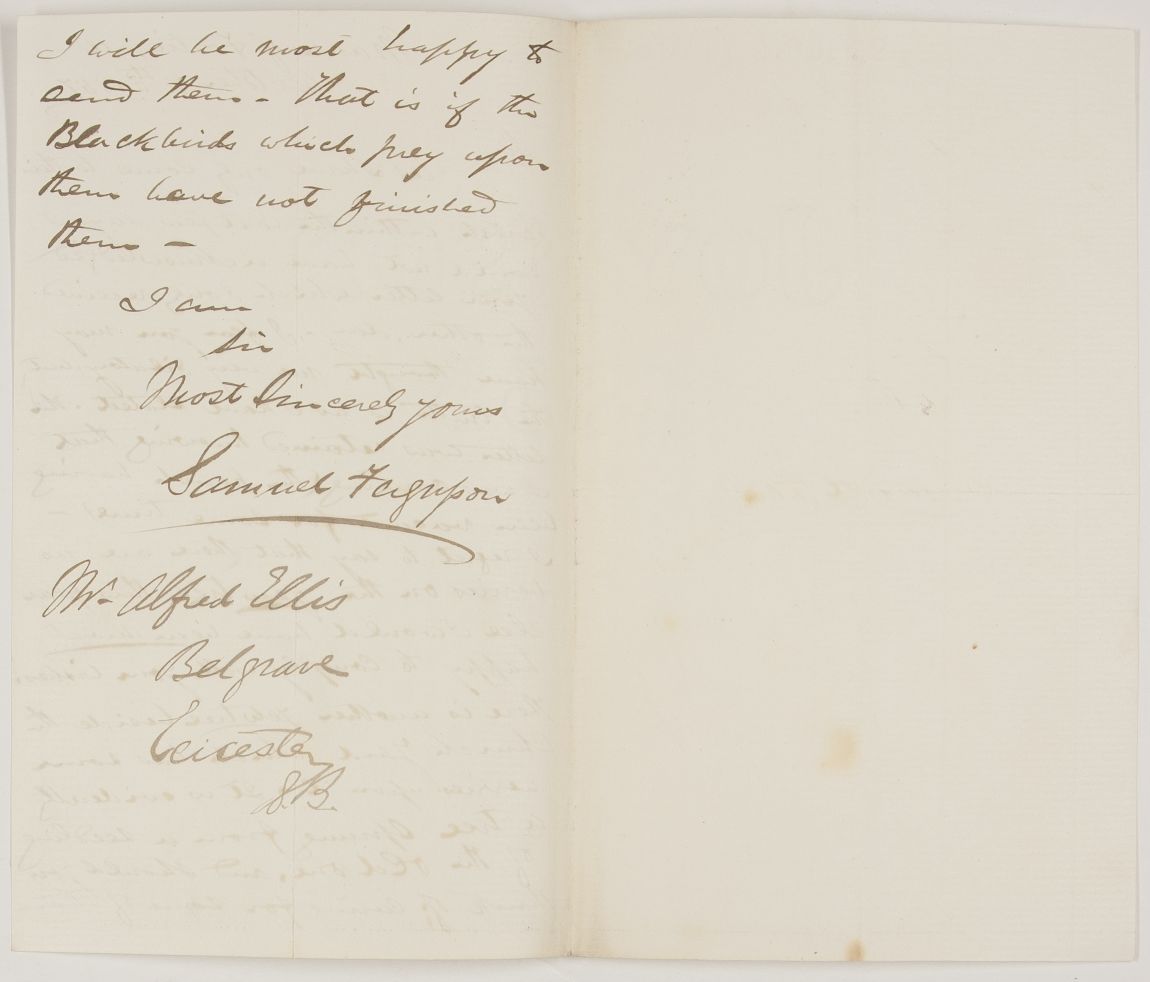 I will be most happy to
send them - That is if the
Blackbirds which prey upon
them have not finished
them -
I am
Sir
Most Sincerely yours
Samuel Fergusson
Mr Alfred Ellis
Belgrave
Leicester